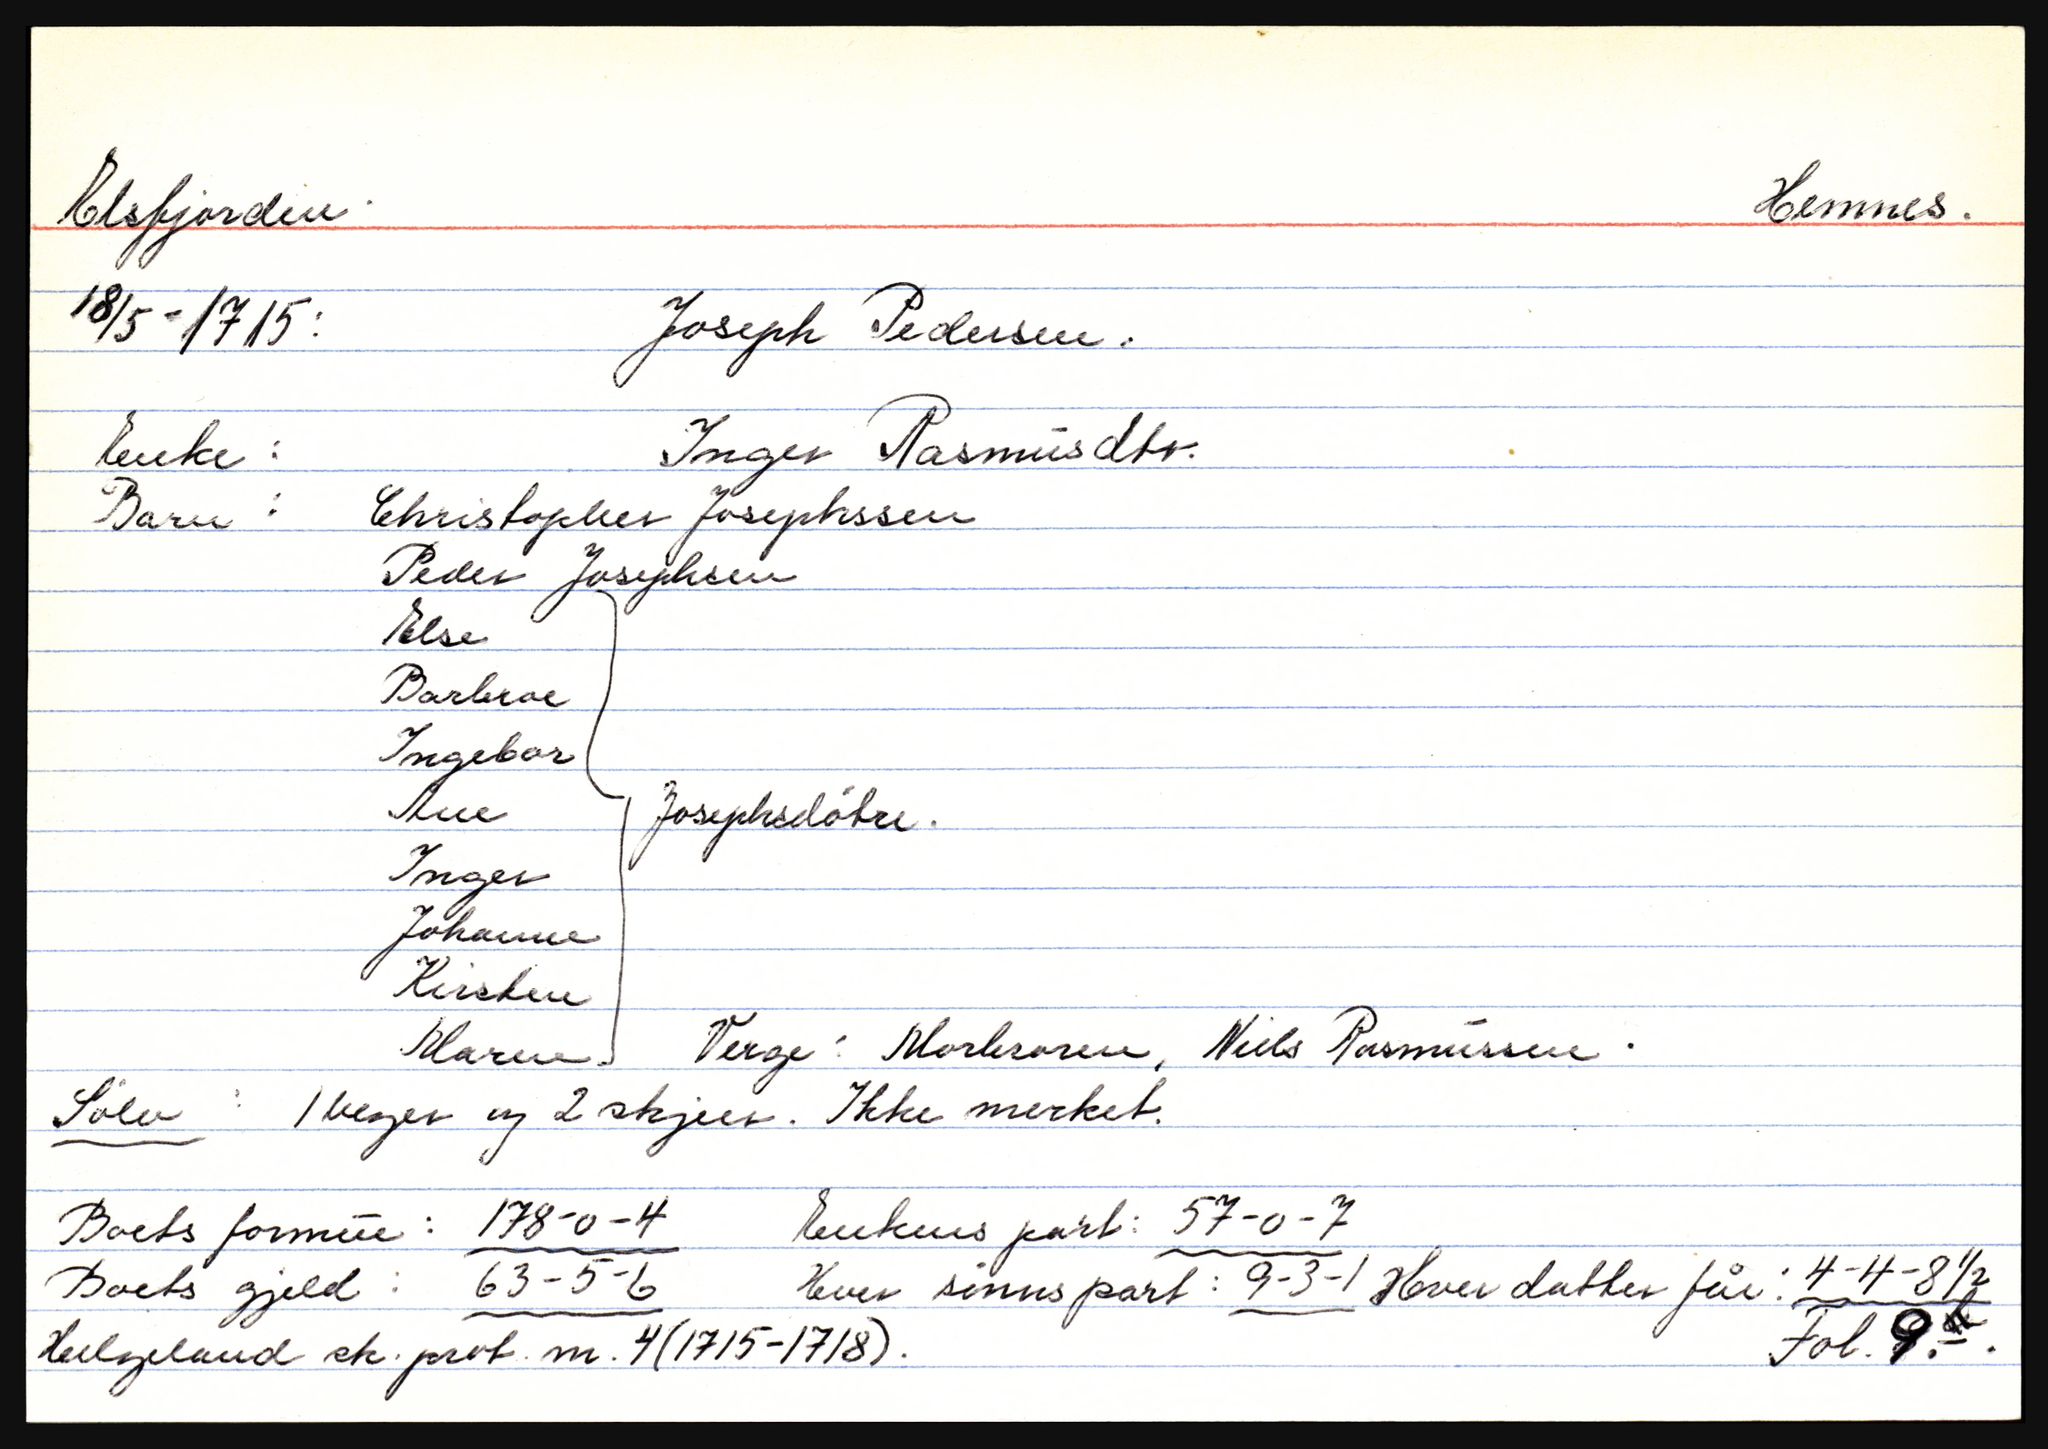 Elsfjorden. Hemnes.
18/5-1715: Joseph Pedersen.
Enke: Inger Rasmusdtr.
Barn: Christopher Josephssen
Peder Josephsen
Else
Barbroe
Ingebor
Ane Josephsdötre.
Inger
Johanne
Kirsten
Maren. Verge: Morbroren, Niels Rasmussen.
Sölv: 1 beger og 2 skjeer. Ikke merket.
Boets formue: 178-0-4 Enkens part: 57-0-7
Boets gjeld: 63-5-6 Hver sönns part: 9-3-1 Hver datter får: 4-4-8 1/2
Helgeland sk. prot. nr. 4 (1715-1718). Fol. 9.